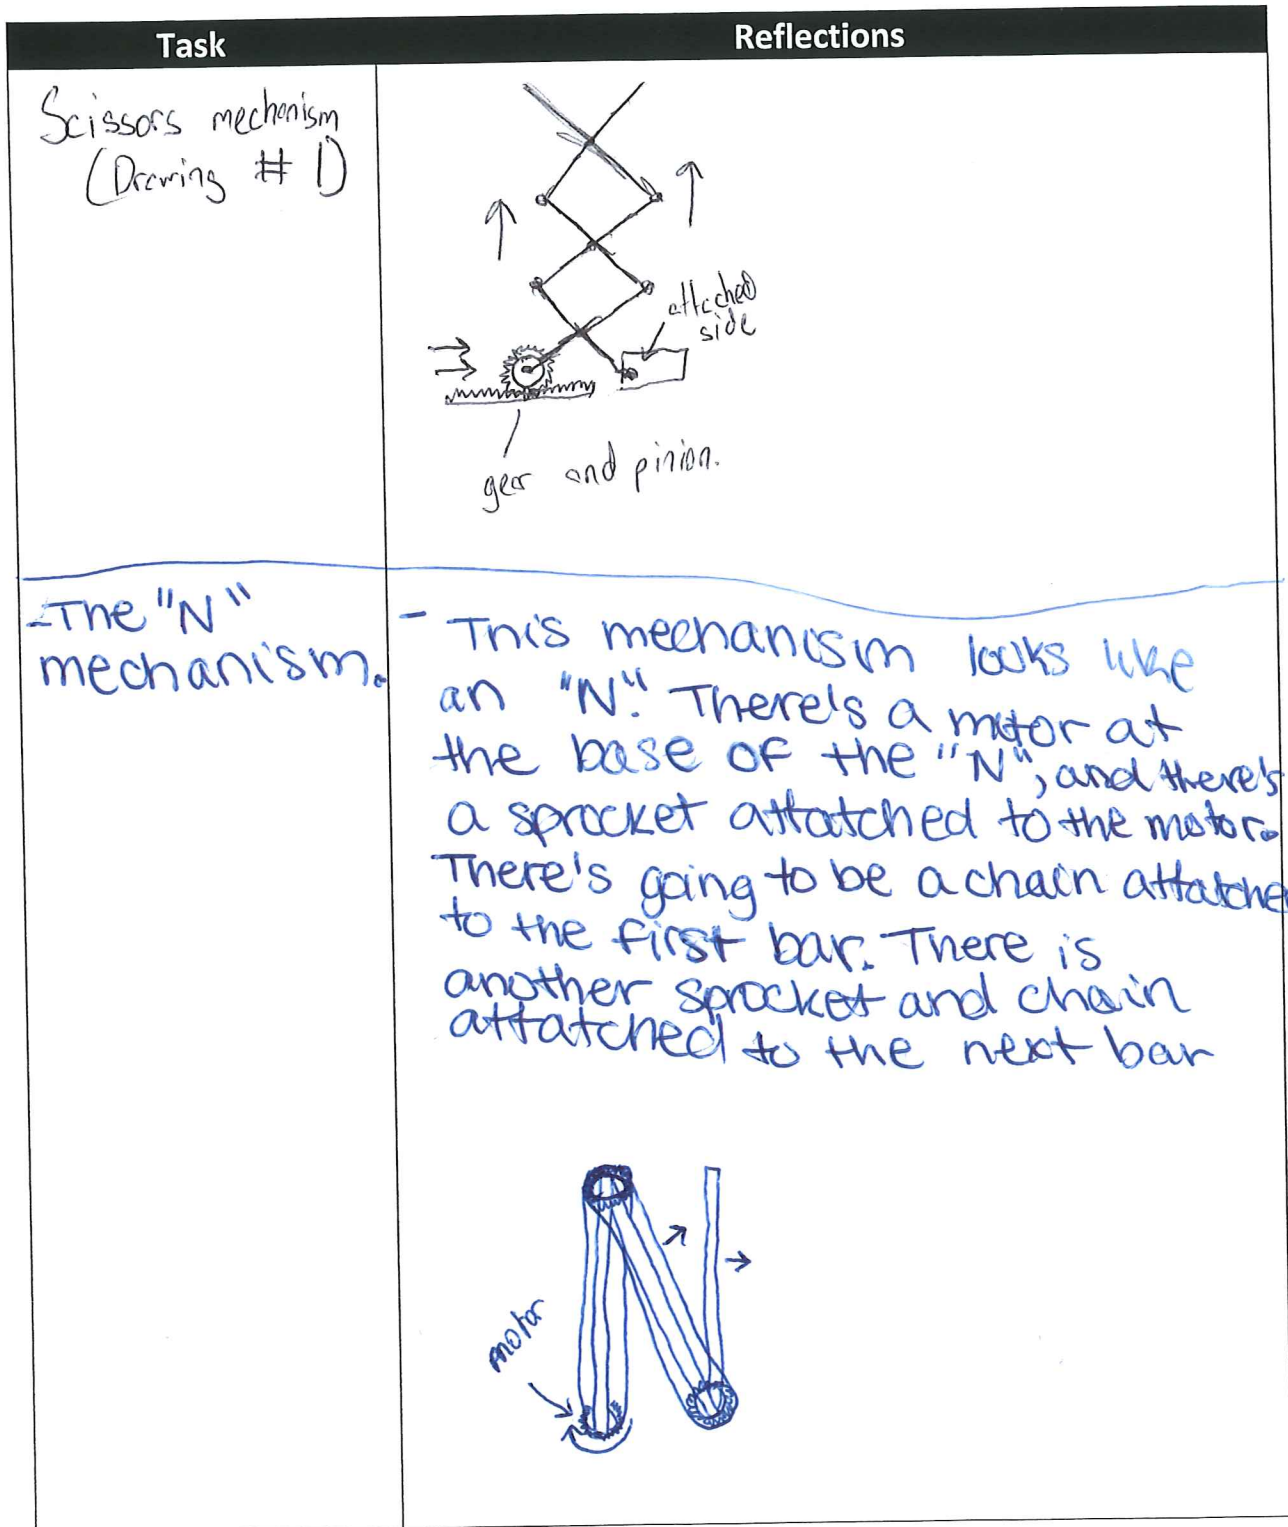 Task
Reflections
Scissors mechanism
(Drawing # 1)
attached
side
gear and pinion.
- The "N"
mechanism.
- This mechanism looks like
an "N". There's a motor at
the base of the "N", and there's
a sprocket attatched to the motor.
There's going to be a chain attatche
to the first bar. There is
another sprocket and chain
attatched to the next bar
motor